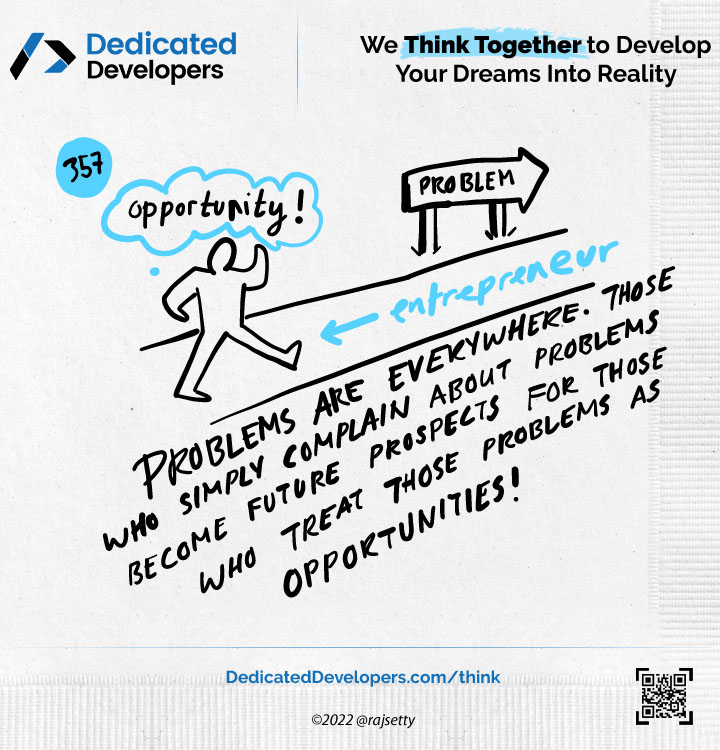 Dedicated
Developers
We Think Together to Develop
Your Dreams Into Reality
357
opportunity!
PROBLEM
entrepreneur
PROBLEMS ARE EVERYWHERE. THOSE
WHO SIMPLY COMPLAIN ABOUT PROBLEMS
BECOME FUTURE PROSPECTS FOR THOSE
WHO TREAT THOSE PROBLEMS AS
OPPORTUNITIES!
DedicatedDevelopers.com/think
©2022 @rajsetty